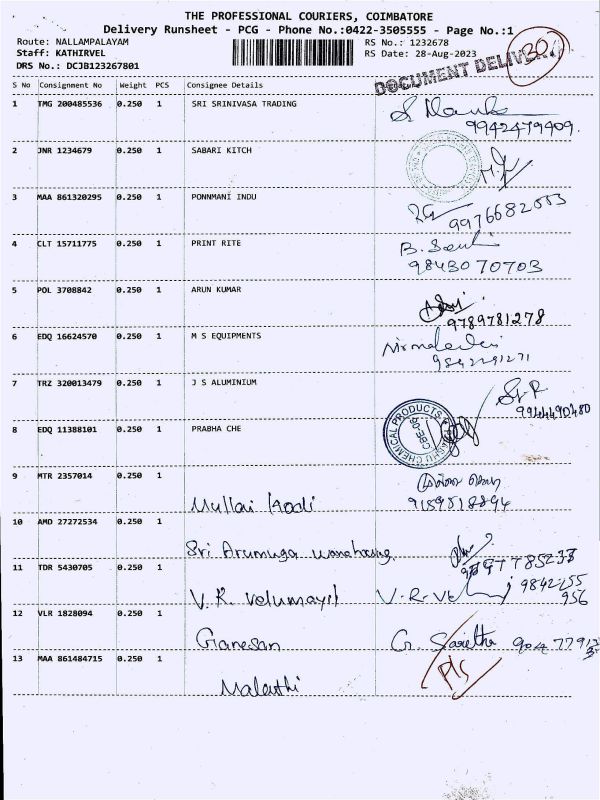 THE PROFESSIONAL COURIERS, COIMBATORE
Delivery Runsheet - PCG - Phone No.:0422-3505555 - Page No.:1
Route: NALLAMPALAYAM RS No.: 1232678
Staff: KATHIRVEL RS Date: 28-Aug-2023
DRS No.: DCJB123267801
DOCUMENT DELIVERY
S No Consignment No Weight PCS Consignee Details
1 TMG 200485536 0.250 1 SRI SRINIVASA TRADING
9942479409.
2 JNR 1234679 0.250 1 SABARI KITCH
3 MAA 861320295 0.250 1 PONNMANI INDU
4 CLT 15711775 0.250 1 PRINT RITE
9843070703
5 POL 3708842 0.250 1 ARUN KUMAR
9789781278
6 EDQ 16624570 0.250 1 M S EQUIPMENTS
7 TRZ 320013479 0.250 1 J S ALUMINIUM
9944490480
8 EDQ 11388101 0.250 1 PRABHA CHE
9 MTR 2357014 0.250 1 Mullai Kodi
9159518894
10 AMD 27272534 0.250 1 Sri Arumuga
11 TDR 5430705 0.250 1 V. R. Velumayil
12 VLR 1828094 0.250 1 Ganesan
13 MAA 861484715 0.250 1 Malathi